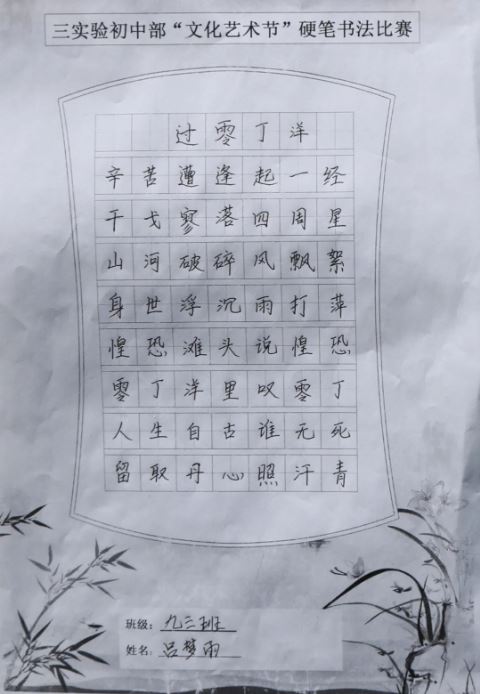 三实验初中部“文化艺术节”硬笔书法比赛
过零丁洋
辛苦遭逢起一经
干戈寥落四周星
山河破碎风飘絮
身世浮沉雨打萍
惶恐滩头说惶恐
零丁洋里叹零丁
人生自古谁无死
留取丹心照汗青
班级：九三班
姓名：吕梦雨